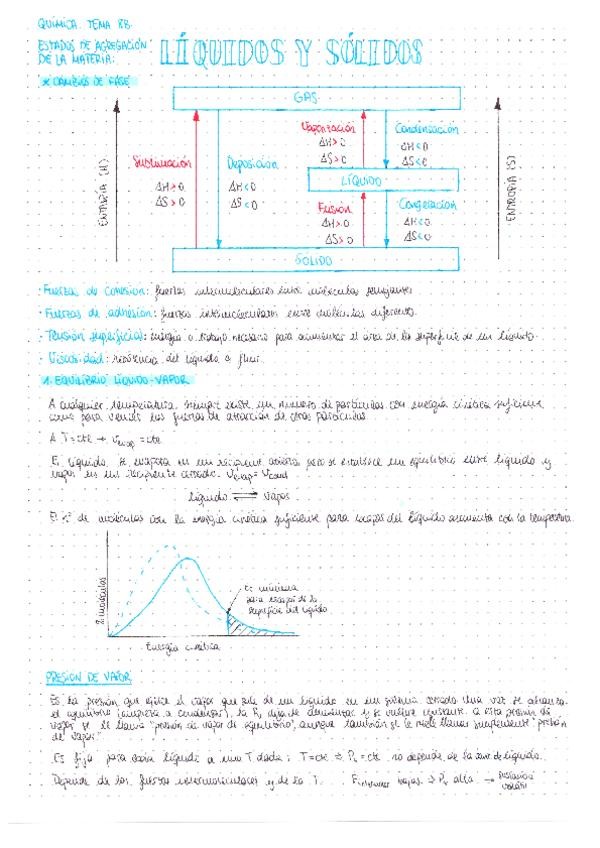 QUÍMICA. TEMA 8B.
ESTADOS DE AGREGACIÓN DE LA MATERIA:
LÍQUIDOS Y SÓLIDOS
* CAMBIOS DE FASE
GAS
Vaporización
ΔH>0
ΔS>0
Condensación
ΔH<0
ΔS<0
Sublimación
ΔH>0
ΔS>0
Deposición
ΔH<0
ΔS<0
LÍQUIDO
Fusión
ΔH>0
ΔS>0
Congelación
ΔH<0
ΔS<0
SÓLIDO
ENTALPÍA (H)
ENTROPÍA (S)
· Fuerzas de cohesión: fuerzas intermoleculares entre moléculas semejantes.
· Fuerzas de adhesión: fuerzas intermoleculares entre moléculas diferentes.
· Tensión superficial: energía o trabajo necesario para aumentar el área de la superficie de un líquido.
· Viscosidad: resistencia del líquido a fluir.
1. EQUILIBRIO LÍQUIDO-VAPOR
A cualquier temperatura, siempre existe un número de partículas con energía cinética suficiente
como para vencer las fuerzas de atracción de otras partículas.
A T=cte → Vevap = cte
El líquido se evapora en un recipiente abierto pero se establece un equilibrio entre líquido y
vapor en un recipiente cerrado. Vevap = Vcond
líquido ⇌ vapor
El nº de moléculas con la energía cinética suficiente para escapar del líquido aumenta con la temperatura.
moléculas
Ec mínima
para escapar de la
superficie del líquido
Energía cinética
PRESIÓN DE VAPOR
Es la presión que ejerce el vapor que sale de un líquido en un sistema cerrado. Una vez se alcanza
el equilibrio (empieza a condensar), la Pv deja de aumentar y se vuelve constante. A esta presión de
vapor se le llama "presión de vapor de equilibrio", aunque también se le suele llamar simplemente "presión
de vapor".
Es fija para cada líquido a una T dada: T=cte ⇒ Pv=cte no depende de la de líquido.
Depende de las fuerzas intermoleculares y de la T. bajas ⇒ Pv alta → sustancia
volátil